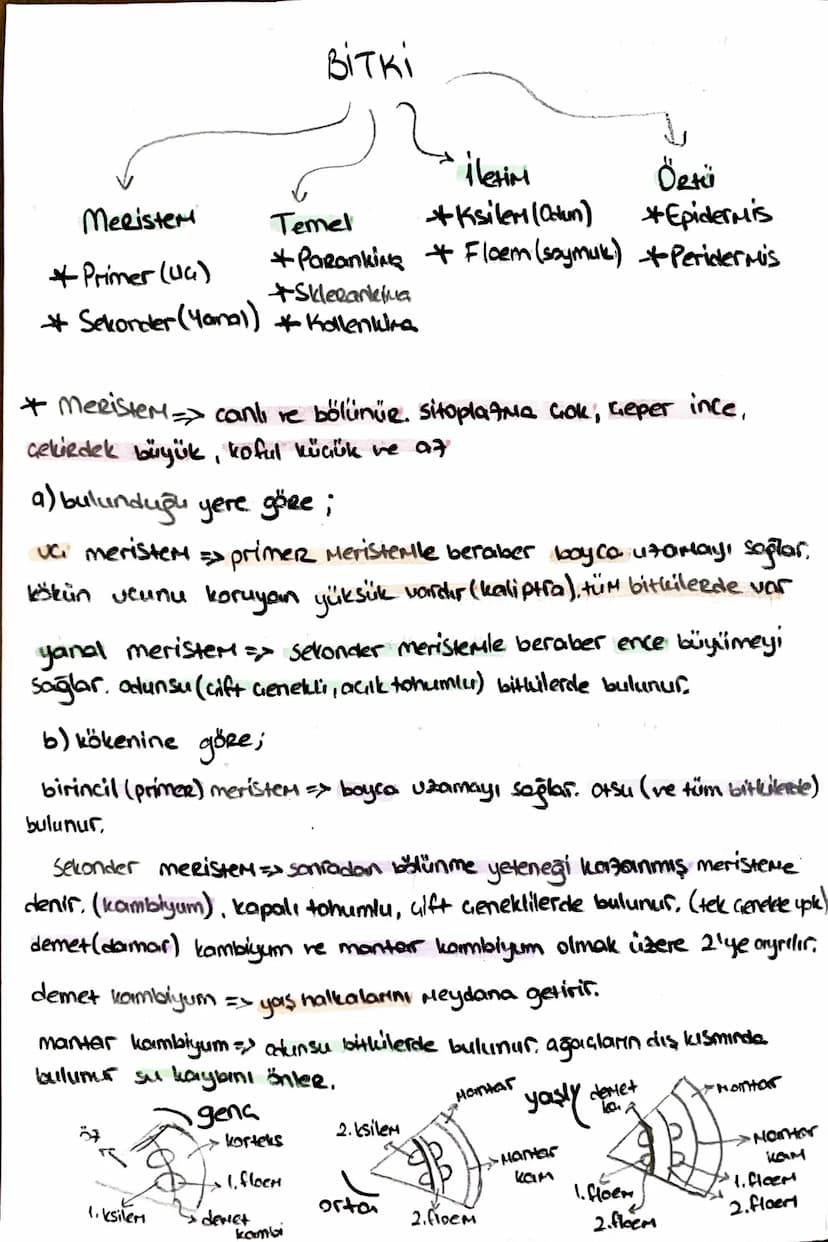 BİTKİ
Meristem
* Primer (Uç)
* Sekonder (Yanal)
Temel
* Parankima
* Sklerankima
* Kollenkima
İletim
* Ksilem (Odun)
* Floem (soymuk)
Örtü
* Epidermis
* Peridermis
* Meristem => canlı ve bölünür. sitoplazma çok, çeper ince,
çekirdek büyük, koful küçük ve az
a) bulunduğu yere göre ;
uç meristem => primer meristemle beraber boyca uzamayı sağlar.
kökün ucunu koruyan yüksük vardır (kaliptra). tüm bitkilerde var
yanal meristem => sekonder meristemle beraber ence büyümeyi
sağlar. odunsu (çift çenekli, açık tohumlu) bitkilerde bulunur.
b) kökenine göre ;
birincil (primer) meristem => boyca uzamayı sağlar. otsu (ve tüm bitkilerde)
bulunur.
Sekonder meristem => sonradan bölünme yeteneği kazanmış meristeme
denir. (kambiyum). kapalı tohumlu, çift çeneklilerde bulunur. (tek çenekte yok)
demet (damar) kambiyum ve mantar kambiyum olmak üzere 2'ye ayrılır.
demet kambiyum => yaş halkalarını meydana getirir.
mantar kambiyum => odunsu bitkilerde bulunur. ağaçların dış kısmında
bulunur su kaybını önler.
genç
öz
korteks
1. floem
1. ksilem
demet
kambi
orta
2. ksilem
Mantar
Mantar
kam
2. floem
yaşlı
demet
ka
Mantar
Mantar
kam
1. floem
2. floem
1. floem
2. floem